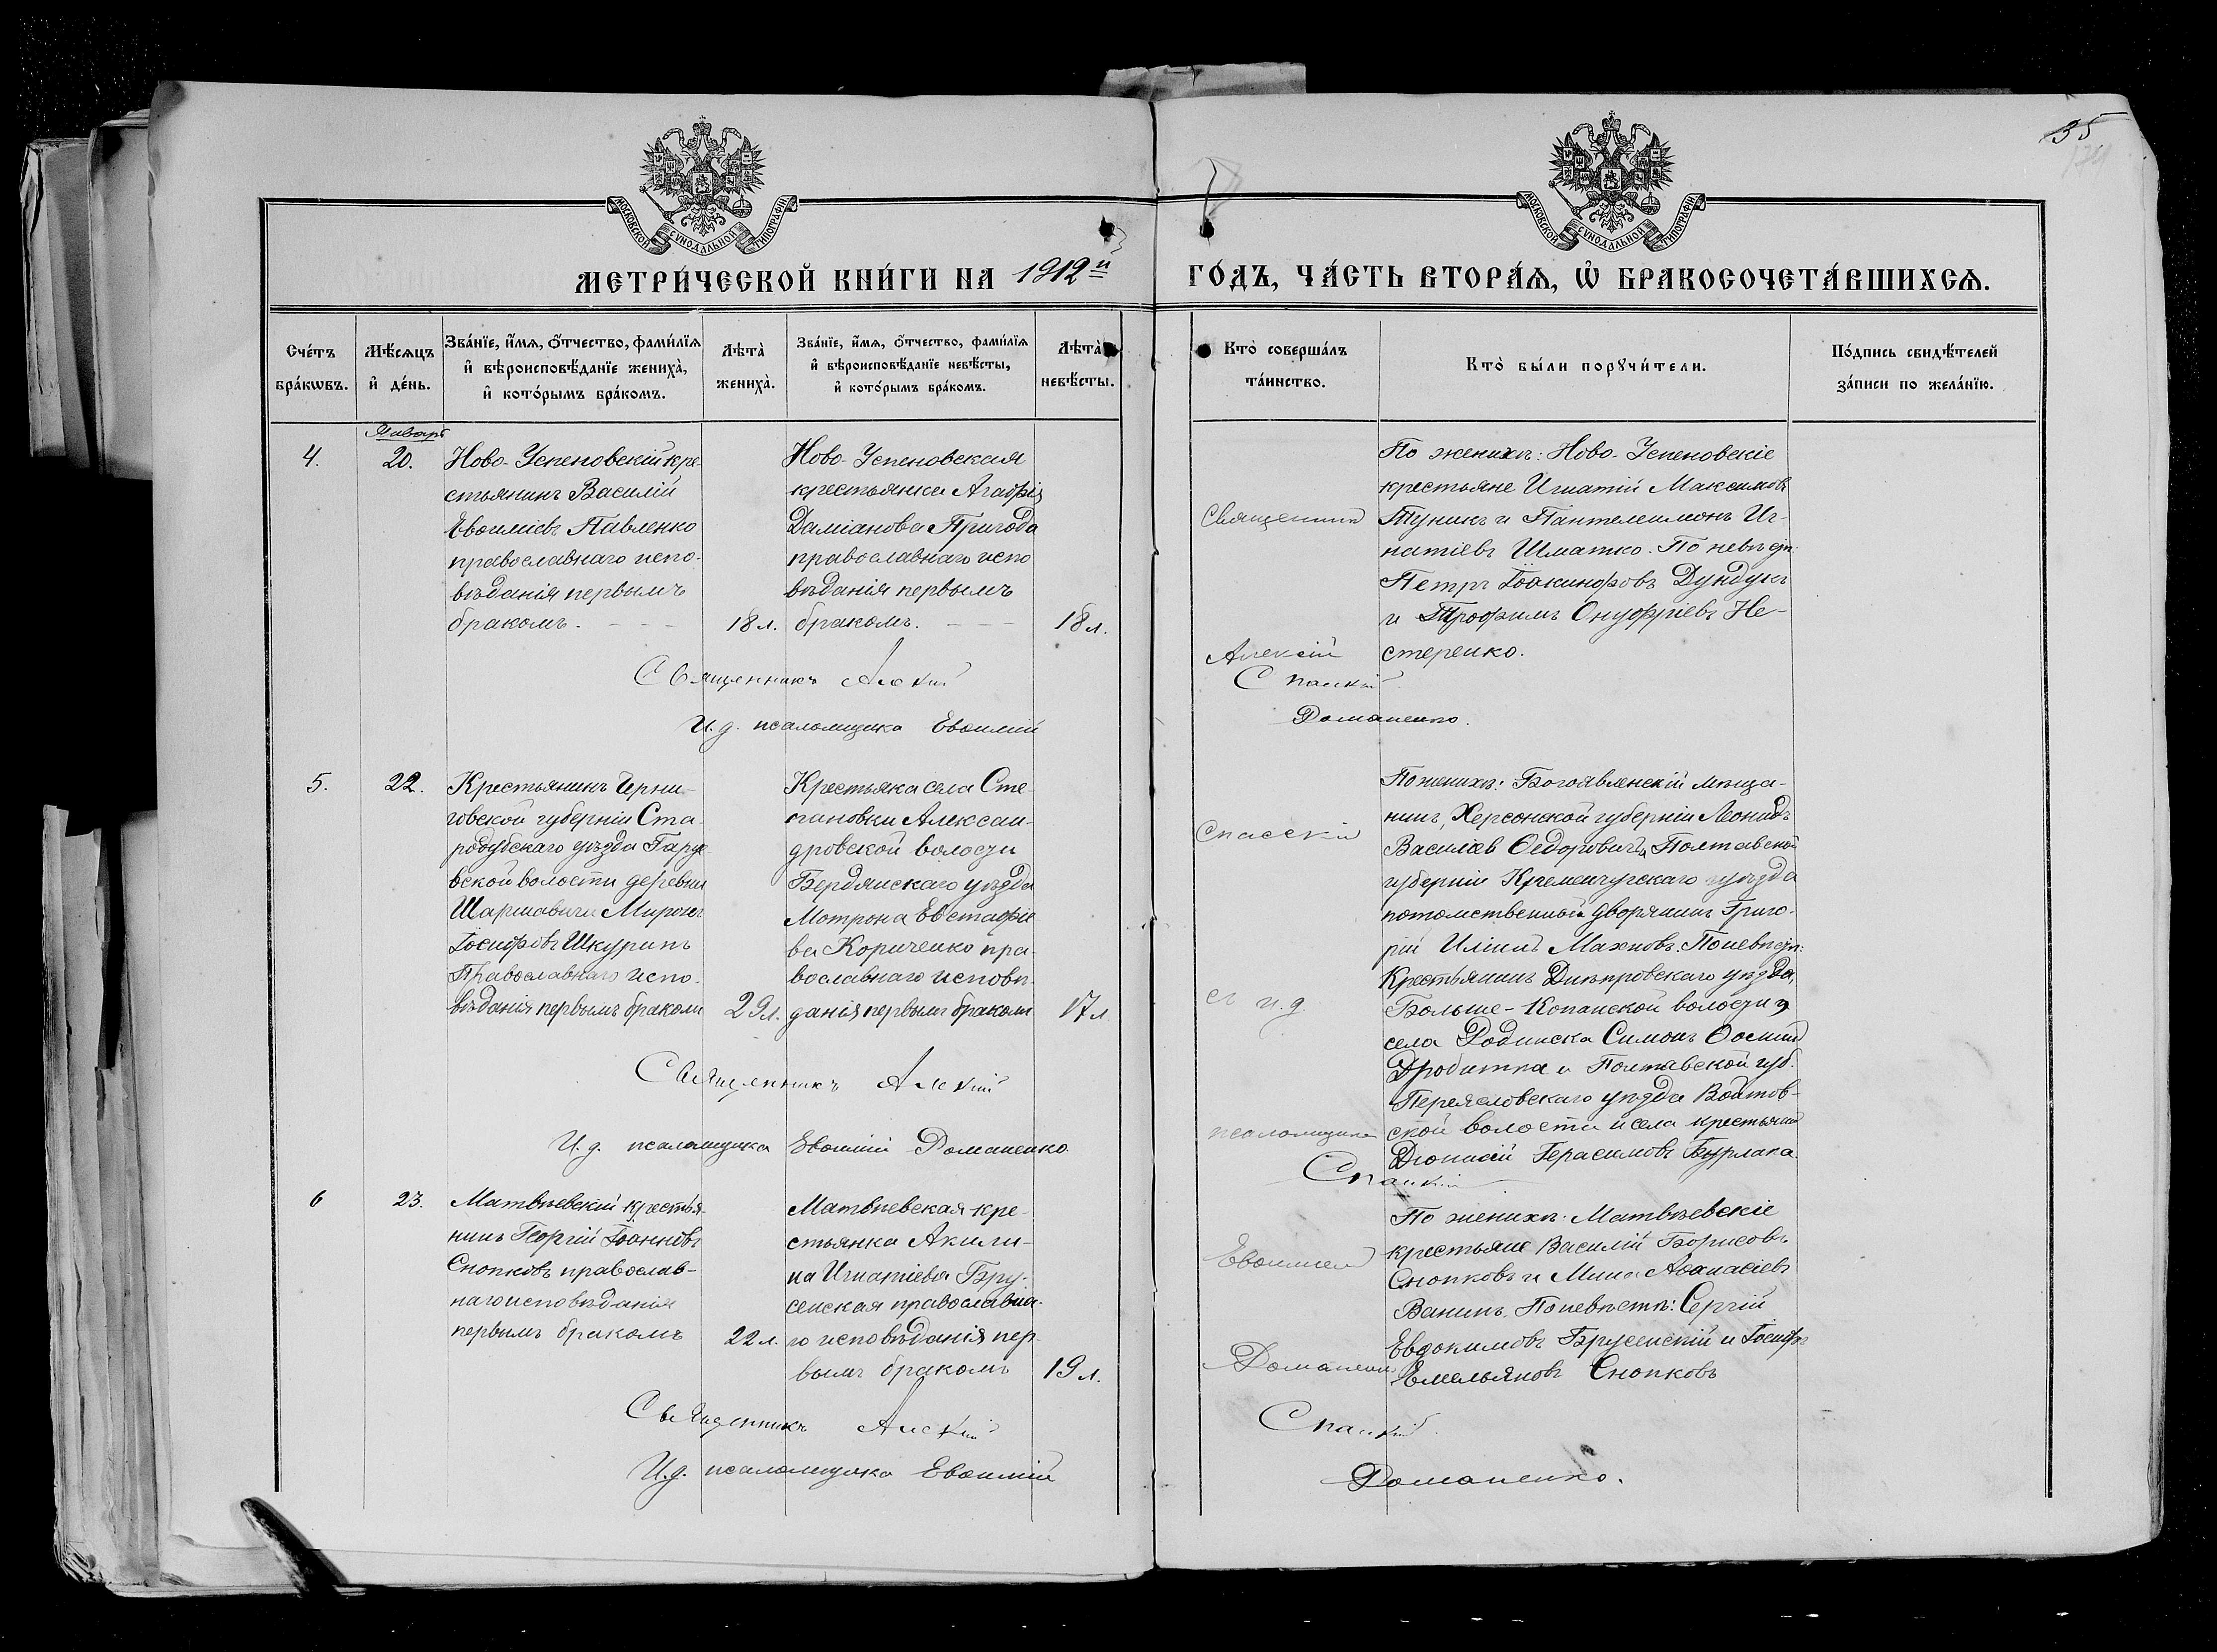 35
МОСКОВСКОЙ СУНОДАЛЬНОЙ ТИПОГРАФІИ
МОСКОВСКОЙ СУНОДАЛЬНОЙ ТИПОГРАФІИ
МЕТРИ́ЧЕСКОЙ КНИ́ГИ НА 1912й
ГО́ДЪ, ЧА́СТЬ ВТОРА́Ѧ, Ѡ҆ БРАКОСОЧЕТА́ВШИХСѦ.
Сче́тъ бра́кѡвъ.
Мѣ́сѧцъ и҆ де́нь.
Зва́нїе, и҆́мѧ, ѻ҆́тчество, фами́лїѧ
и҆ вѣроисповѣ́данїе жениха̀,
и҆ кото́рымъ бра́комъ.
Лѣта̀ жениха̀.
Зва́нїе, и҆́мѧ, ѻ҆́тчество, фами́лїѧ
и҆ вѣроисповѣ́данїе невѣ́сты,
и҆ кото́рымъ бра́комъ.
Лѣта̀ невѣ́сты.
Кто̀ соверша́лъ
та́инство.
Кто̀ бы́ли порꙋчи́тели.
По́дпись свидѣ́телей
за́писи по жела́нїю.
Январь
4.
20.
Ново-Успеновскій кре-
стьянинъ Василій
Евѳиміевъ Павленко
православнаго испо-
вѣданія первымъ
бракомъ.
18 л.
Ново-Успеновская
крестьянка Агафія
Даміанова Пригода
православнаго испо
вѣданія первымъ
бракомъ.
18 л.
Священникъ
Алексій
Спасскій
По женихѣ: Ново-Успеновскіе
крестьяне Игнатій Максимовъ
Туникъ и Пантелеимонъ Иг-
натіевъ Шматко. По невѣстѣ:
Петръ Іоакинфовъ Дундукъ
и Трофимъ Онуфріевъ Не-
стеренко.
Священникъ Алексій
И.д. псаломщика Евѳимій
Доманенко.
5.
22.
Крестьянинъ Черни-
говской губерніи Ста-
родубскаго уѣзда
вской волости деревни
Миронъ
Іосифовъ Шкуринъ
Православнаго испо-
вѣданія первымъ бракомъ
29 л.
Крестьяка села Сте-
пановки Алексан-
дровской волости
Бердянскаго уѣзда
Мотрона Евстафіе
ва Кориченко пра-
вославнаго исповѣ-
данія первымъ бракомъ
17 л.
Спасскій
съ и.д.
псаломщика
По женихѣ: Богоявленскій мѣща-
нинъ, Херсонской губерніи Леонидъ
Василіев Ѳедоровичъ и Полтавской
губерніи Кременчугскаго уѣзда
потомственный дворянинъ Григо-
рій Иліинъ Махновъ. По невѣстѣ:
Крестьянинъ Днѣпровскаго уѣзда,
Больше-Копанской волости
села Симонъ
и Полтавской губ.
Переясловскаго уѣзда Войтов-
ской волости и села крестьянинъ
Діонисій Герасимовъ Бурлака.
Священникъ Алексій
Спасскій
И.д. псаломщика Евѳимій Доманенко
6
23.
Матвѣевскій крестья-
нинъ Георгій Іоанновъ
Снопковъ православ-
наго исповѣданія
первымъ бракомъ
22 л.
Матвѣевская кре-
стьянка Акили-
на Игнатіева Бру-
сенская православна-
го исповѣданія пер-
вымъ бракомъ
19 л.
Евѳиміемъ
Доманенко
По женихѣ: Матвѣевскіе
крестьяне Василій Борисовъ
Снопковъ и Мина Аѳанасіевъ
Ванинъ. По невѣстѣ: Сергій
Евдокимовъ Брусенскій и Іосифъ
Емельяновъ Снопковъ
Священникъ Алексій
Спасскій
И.д. псаломщика Евѳимій
Доманенко.